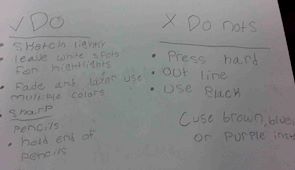 ✓ Do
• Sketch lightly
• leave white spots
for hightlights
• Fade and layer use
muliple colors
• Sharp
pencils
• hold end of
pencils
X Do nots
• Press hard
• out line
• use Black
(use brown, blue,
or purple